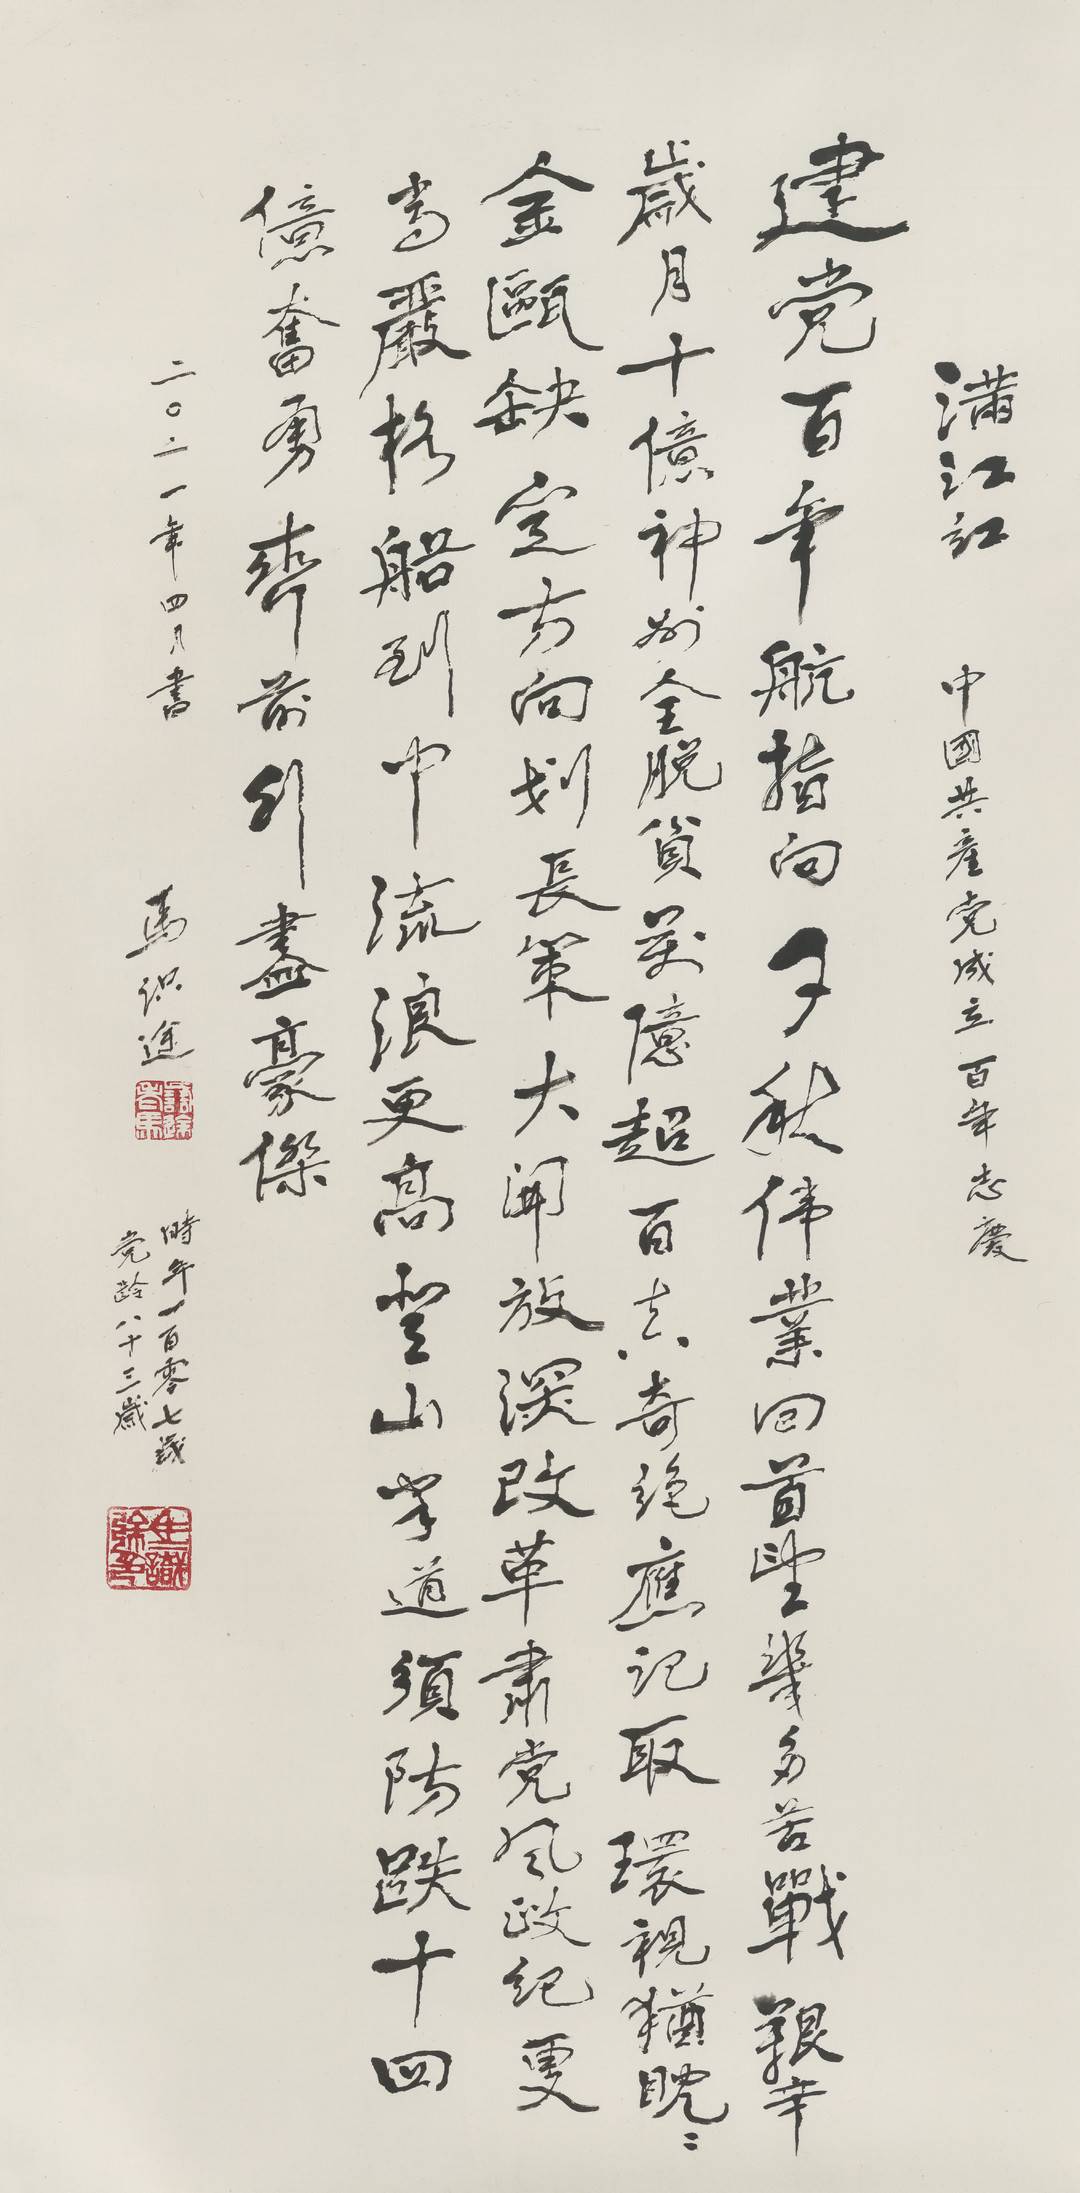 滿江红 中國共產党成立百年志慶
建党百年航指向千秋伟業回首望幾多苦戰艱辛
歲月十億神州全脱貧萬億超百真奇绝應記取環視猶眈〻
金甌缺定方向划長策大開放深改革肅党风政紀更
当嚴格船到中流浪更高登山半道須防跌十四
億奮勇齊前行盡豪傑
二〇二一年四月書 馬识途
時年一百零七歲
党龄八十三歲